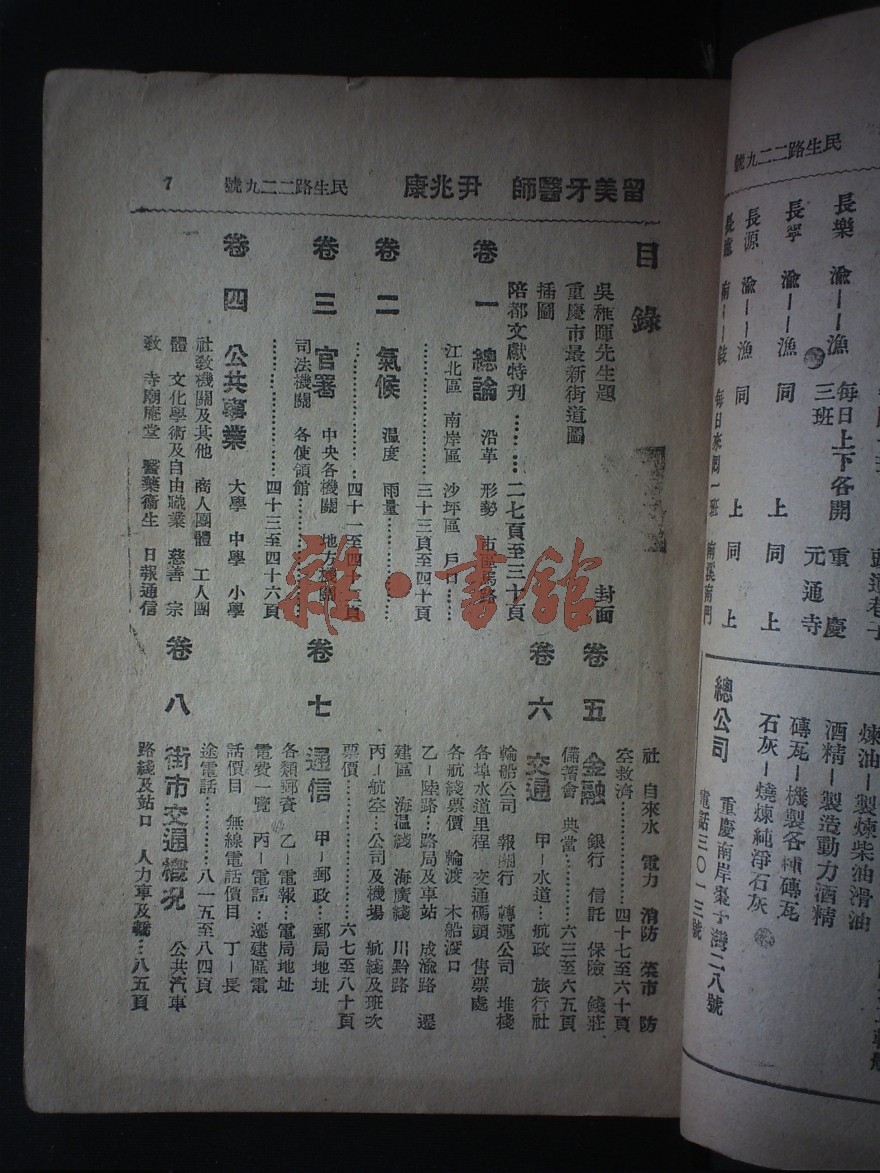 留美牙醫師 尹兆康 民生路二二九號 7
目錄
吳稚暉先生題 封面
重慶市最新街道圖
插圖
陪都文獻特刊………二七頁至三十頁
卷一 總論 沿革 形勢 市區馬路
江北區 南岸區 沙坪區 戶口……
…………………三十三頁至四十頁
卷二 氣候 溫度 雨量…………
卷三 官署 中央各機關 地方機關
司法機關 各使領館……………
…………………四十三至四十六頁
卷四 公共事業 大學 中學 小學
社教機關及其他 商人團體 工人團
體 文化學術及自由職業 慈善 宗
教 寺廟庵堂 醫藥衞生 日報通信
社 自來水 電力 消防 菜市 防
空救濟……………四十七至六十頁
卷五 金融 銀行 信託 保險 錢莊
備蓄會 典當……六三至六五頁
卷六 交通 甲─水道…航政 旅行社
輪船公司 報關行 轉運公司 堆棧
各埠水道里程 交通碼頭 售票處
各航綫票價 輪渡 木船渡口
乙─陸路…路局及車站 成渝路 遷
建區 海溫綫 海廣綫 川黔路
丙─航空…公司及機場 航綫及班次
票價……………六七至八十頁
卷七 通信 甲─郵政…郵局地址
各類郵資 乙─電報…電局地址
電費一覽 丙─電話…遷建區電
話價目 無線電話價目 丁─長
途電話…………八一五至八四頁
卷八 街市交通概況 公共汽車
路綫及站口 人力車及轎…八五頁
民生路二二九號
長樂 渝──漁 每日上下各開三班 重慶元通寺
長寧 渝──漁 同上 同上
長源 渝──漁 同上 同上
煉油─製煉柴油滑油
酒精─製造動力酒精
磚瓦─機製各種磚瓦
石灰─燒煉純淨石灰
總公司 重慶南岸棗子灣二八號
電話三〇一三號
雜·書館